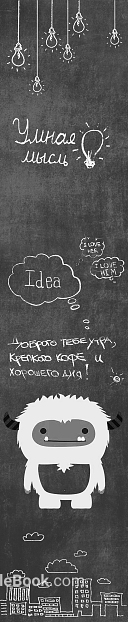 Умная
мысль
I LOVE
HER
I LOVE
HIM
Idea
Доброго тебе утра,
крепкого кофе и
хорошего дня!
leBook.com